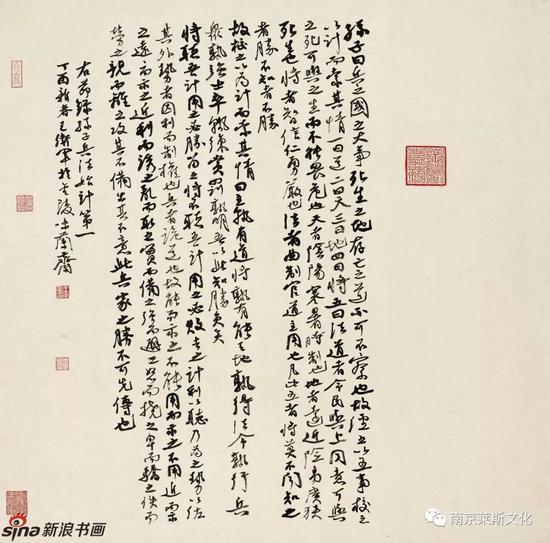 孫子曰兵者國之大事死生之地存亡之道不可不察也故經之以五事校之
以計而索其情一曰道二曰天三曰地四曰將五曰法道者令民與上同意可與
之死可與之生而不畏危也天者陰陽寒暑時制也地者遠近險易廣狹
死生也將者智信仁勇嚴也法者曲制官道主用也凡此五者將莫不聞知之
者勝不知者不勝
故校之以為計而索其情曰主孰有道將孰有能天地孰得法令孰行兵
眾孰強士卒孰練賞罰孰明吾以此知勝負矣
將聽吾計用之必勝留之將不聽吾計用之必敗去之計利以聽乃為之勢以佐
其外勢者因利而制權也兵者詭道也故能而示之不能用而示之不用近而示
之遠而示之近利而誘之亂而取之實而備之強而避之怒而撓之卑而驕之佚而
勞之親而離之攻其不備出其不意此兵家之勝不可先傳也
右節錄孫子兵法始計第一
丁酉 春王衛軍於金陵 蘭齋
sina新浪书画
南京莱斯文化